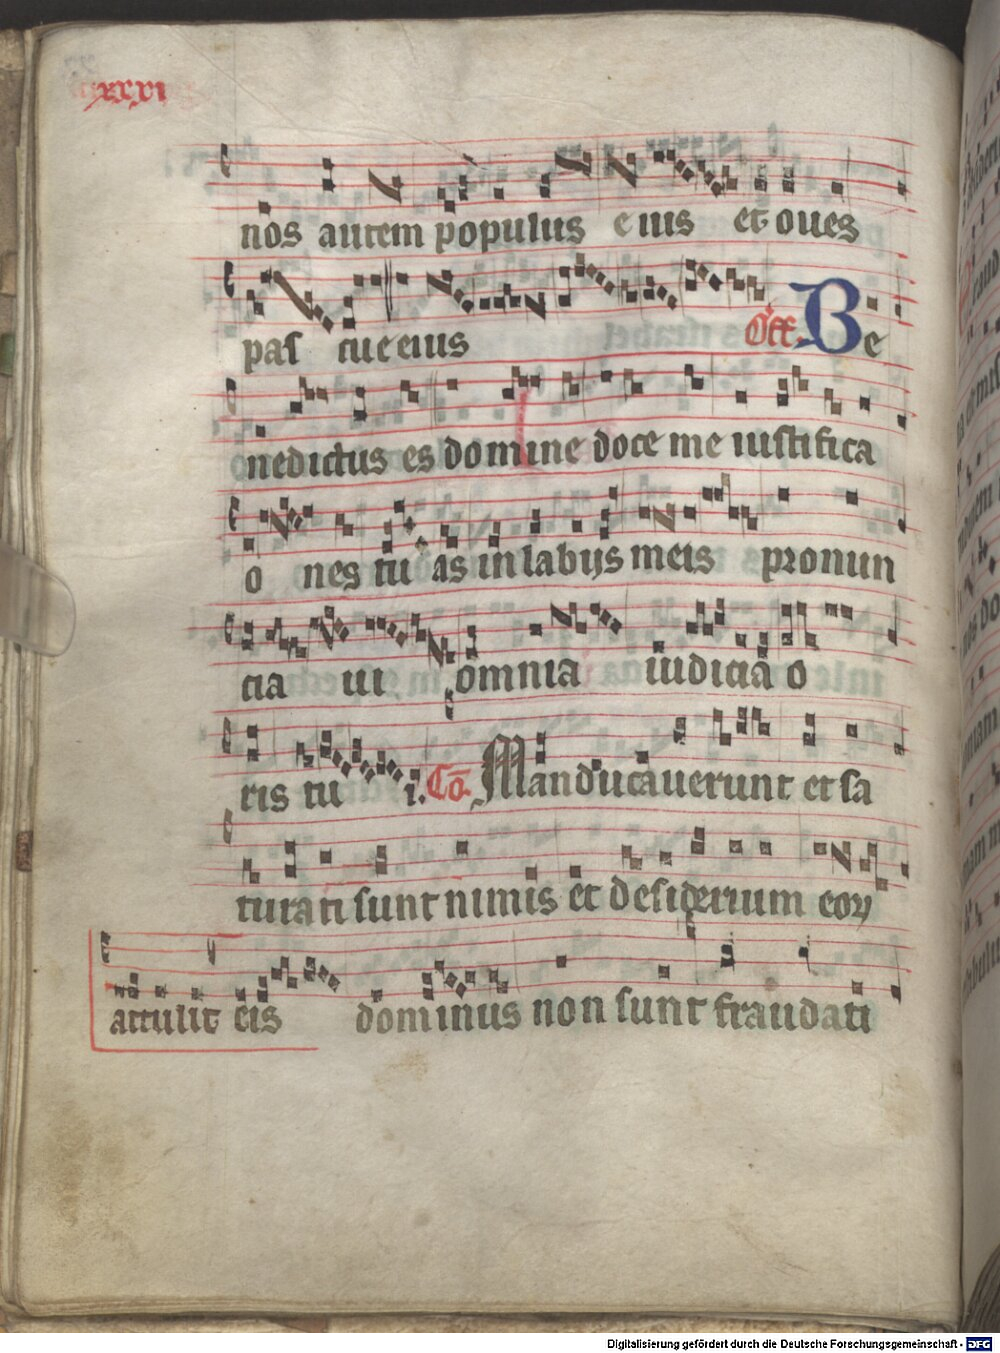 xxxvi
nos autem populus eius et oues
pas cue eius Off. Be
nedictus es domine doce me iustifica
o nes tu as in labijs meis pronun
cia ui omnia iudicia o
ris tu i. Cō. Manducauerunt et sa
turati sunt nimis et desiderium eoꝝ
attulit eis dominus non sunt fraudati
Digitalisierung gefördert durch die Deutsche Forschungsgemeinschaft - DFG